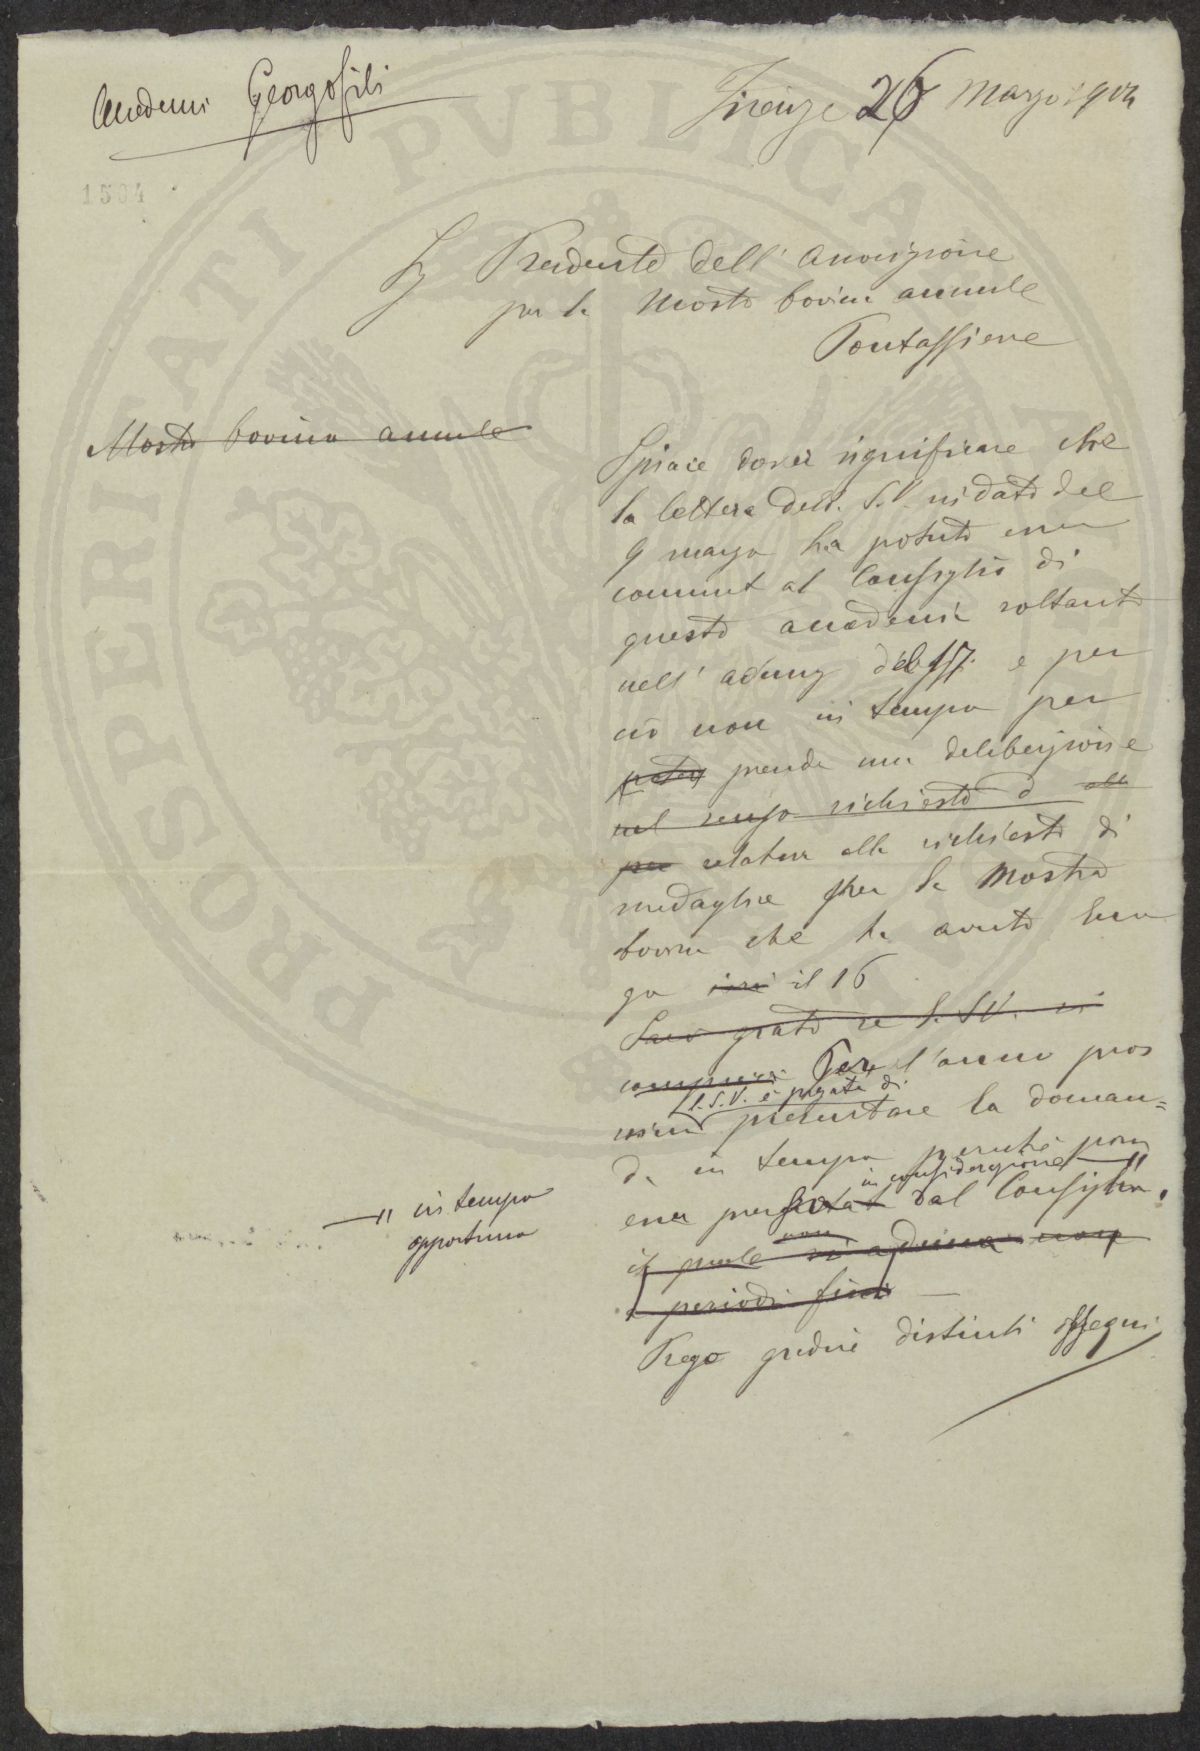 Accademi Georgofili
Firenze 26 Marzo 1904
1504
Presidente dell' Associazione
per la Mostra bovina annuale
Pontassieve
Mostra bovina annuale
Spiace dover significare che
la lettera della S.V. in data del
9 marzo ha potuto esser
comunt al Consiglio di
questa accademia soltanto
nell' adunz del 17. e per
ciò non in tempo per
poter prender una deliberazione
nel senso richiesto
per relativa alla richiesta di
medaglie per la Mostra
bovina che ha avuto luo
go ieri il 16
Sarò grato se la S.V. si
Per l'anno pros
simo la S.V. è pregata di presentare la doman=
da in tempo perchè possa
esser presa in considerazione dal Consiglio.
— " in tempo
opportuno
non
periodi fissi
Prego gradire distinti ossequi
PROSPERITATI PVBLICAE